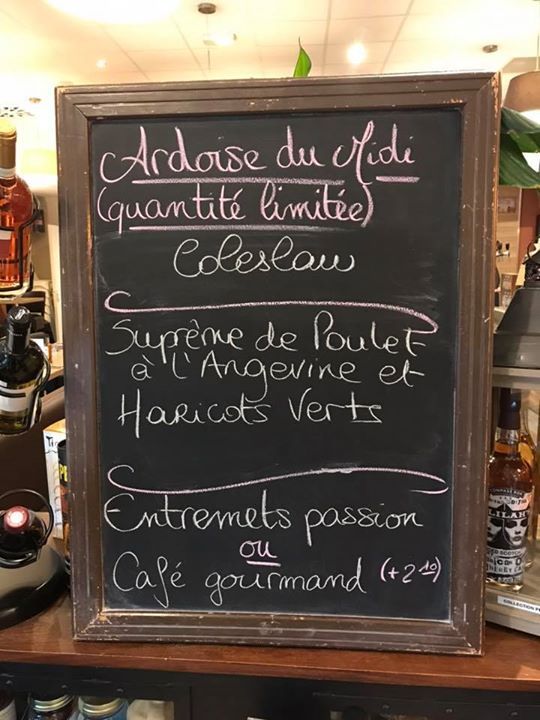 Ardoise du Midi
(quantité limitée)
Coleslaw
Suprême de Poulet
à l'Angevine et
Haricots Verts
Entremets passion
ou
Café gourmand (+2 10)
LILAH
COLLECTION